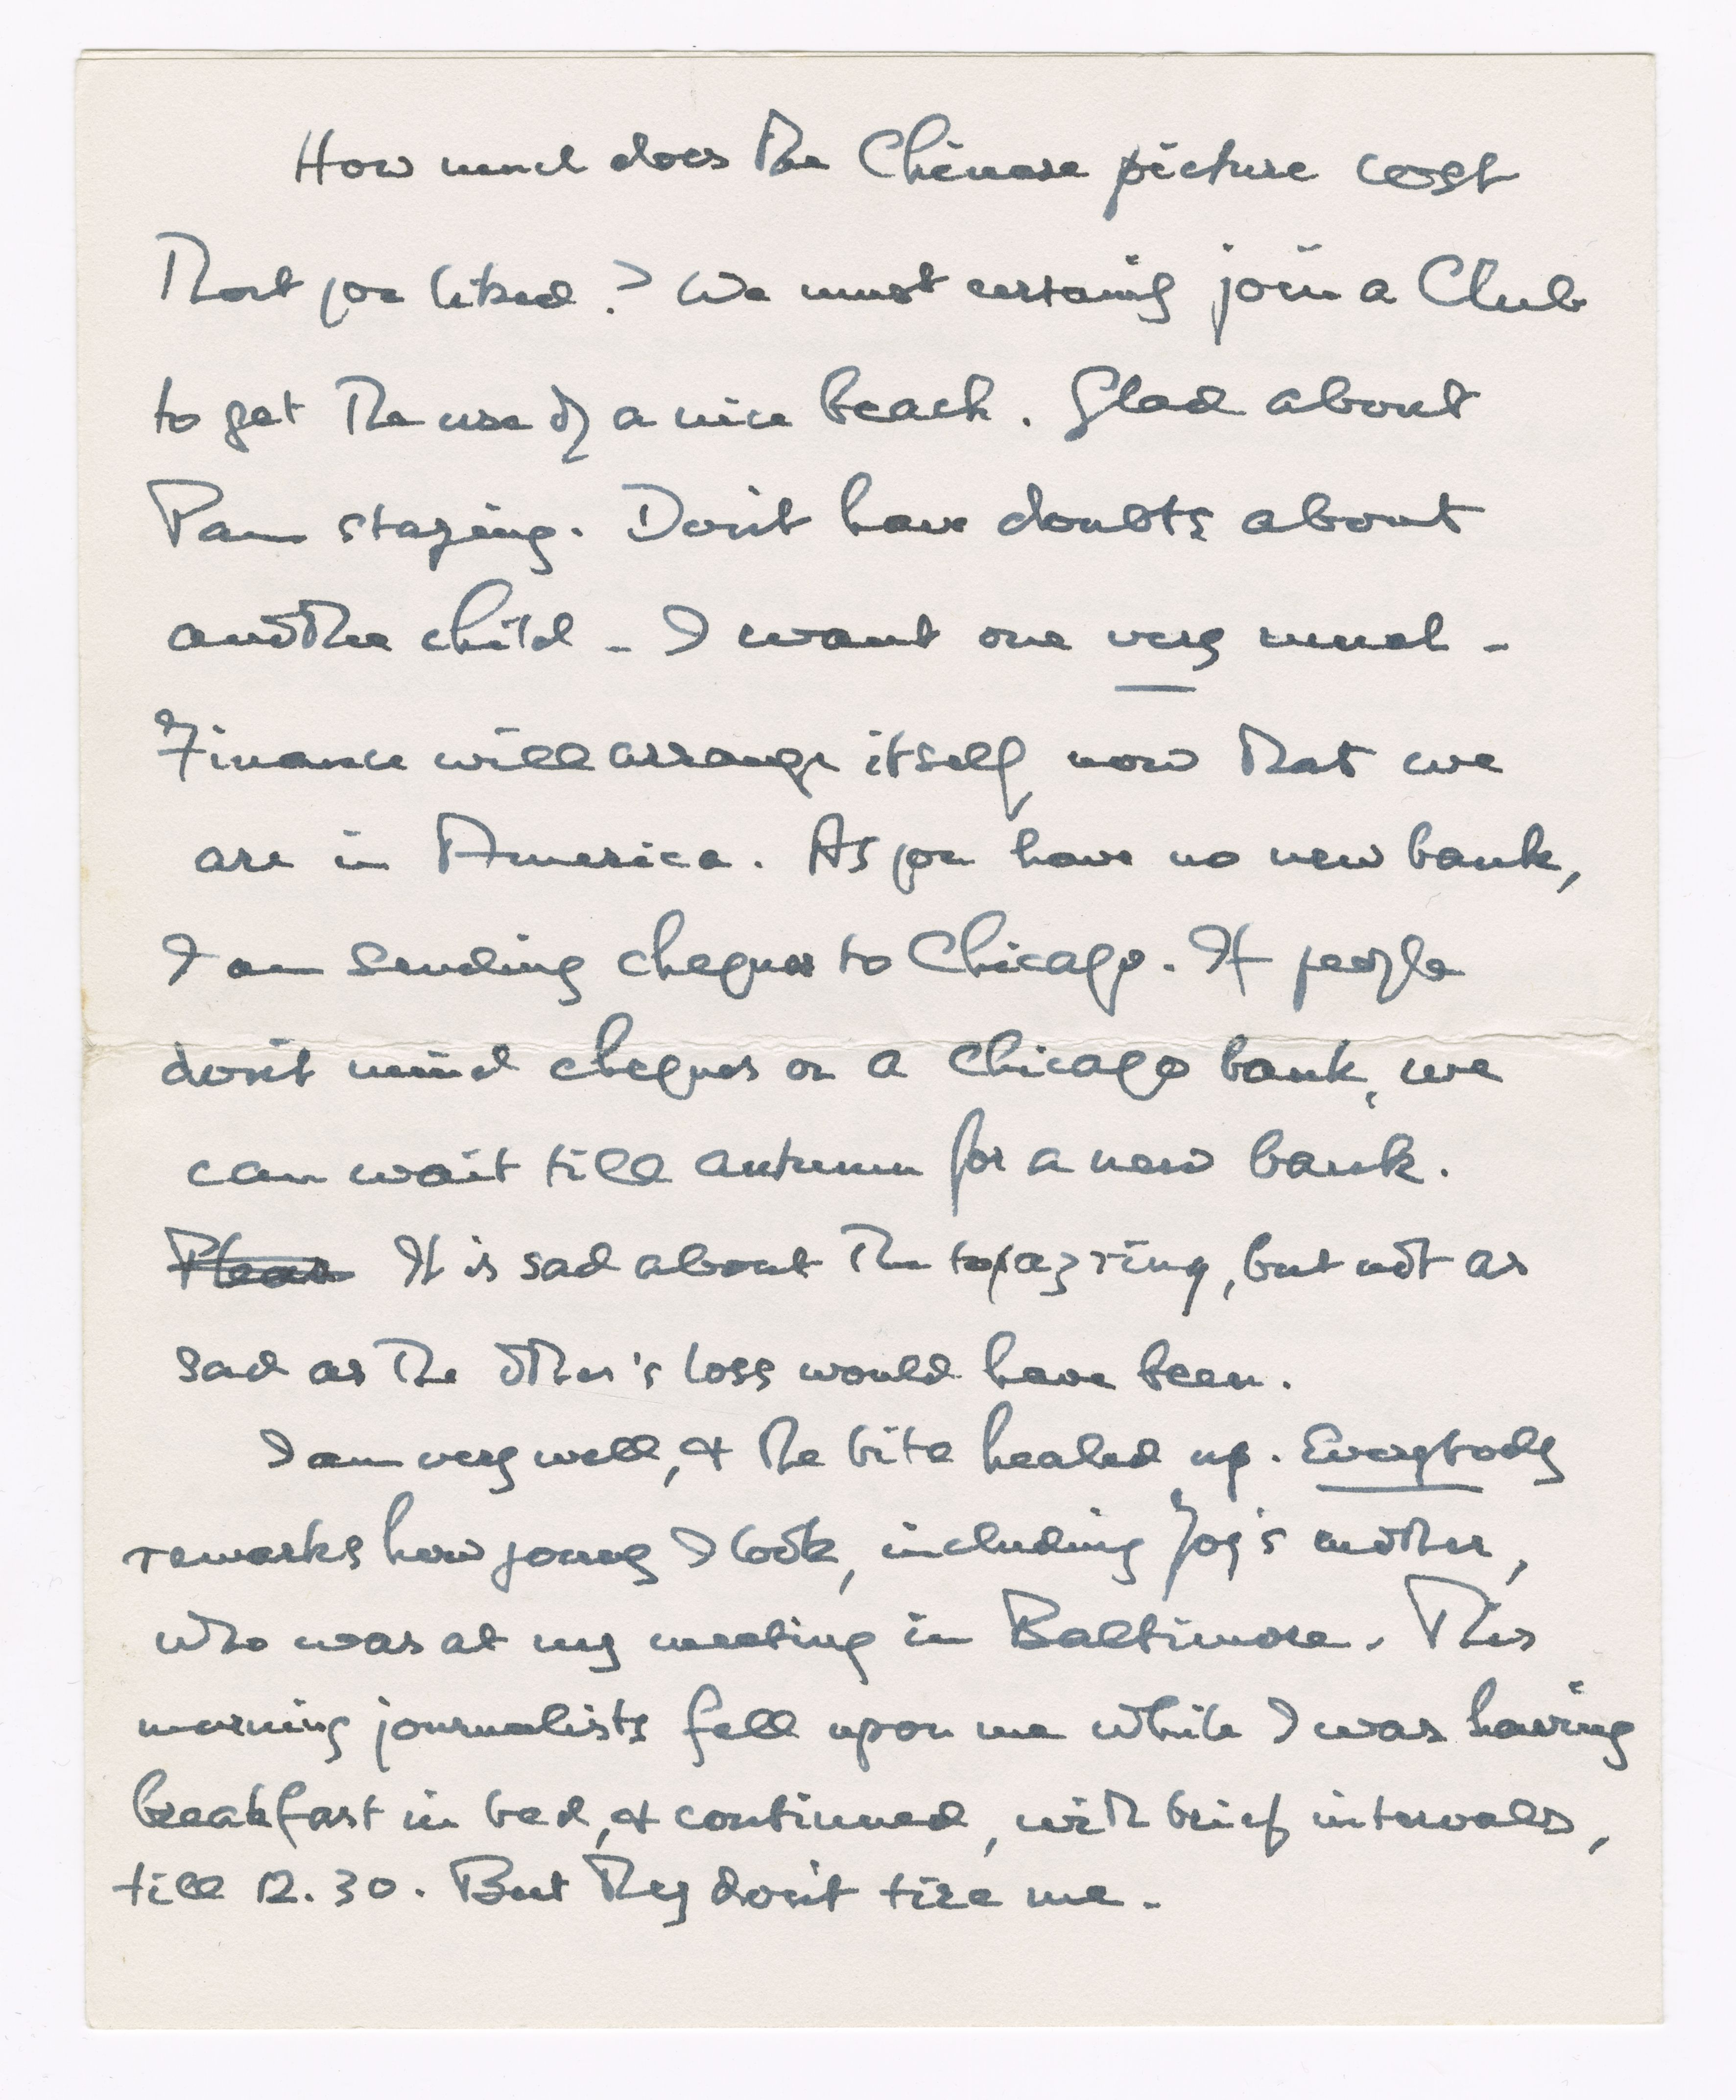 How much does the Chinese picture cost
that you liked? We must certainly join a Club
to get the use of a nice beach. Glad about
Pam staying. Don't have doubts about
another child – I want one very much –
Finance will arrange itself, now that we
are in America. As you have no new bank,
I am sending cheques to Chicago. If people
don't mind cheques on a Chicago bank, we
can wait till autumn for a new bank.
Please It is sad about the topaz ring, but not as
sad as the other's loss would have been.
I am very well, & the bite healed up. Everybody
remarks how young I look, including Joy's mother,
who was at my meeting in Baltimore. This
morning journalists fell upon me while I was having
breakfast in bed, & continued, with brief intervals,
till 12.30. But they don't tire me.